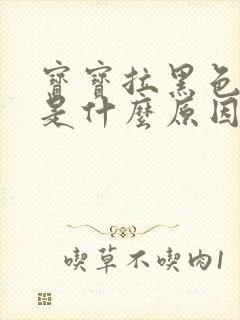 寶寶拉黑色
是什麼原因
喫草不喫肉1